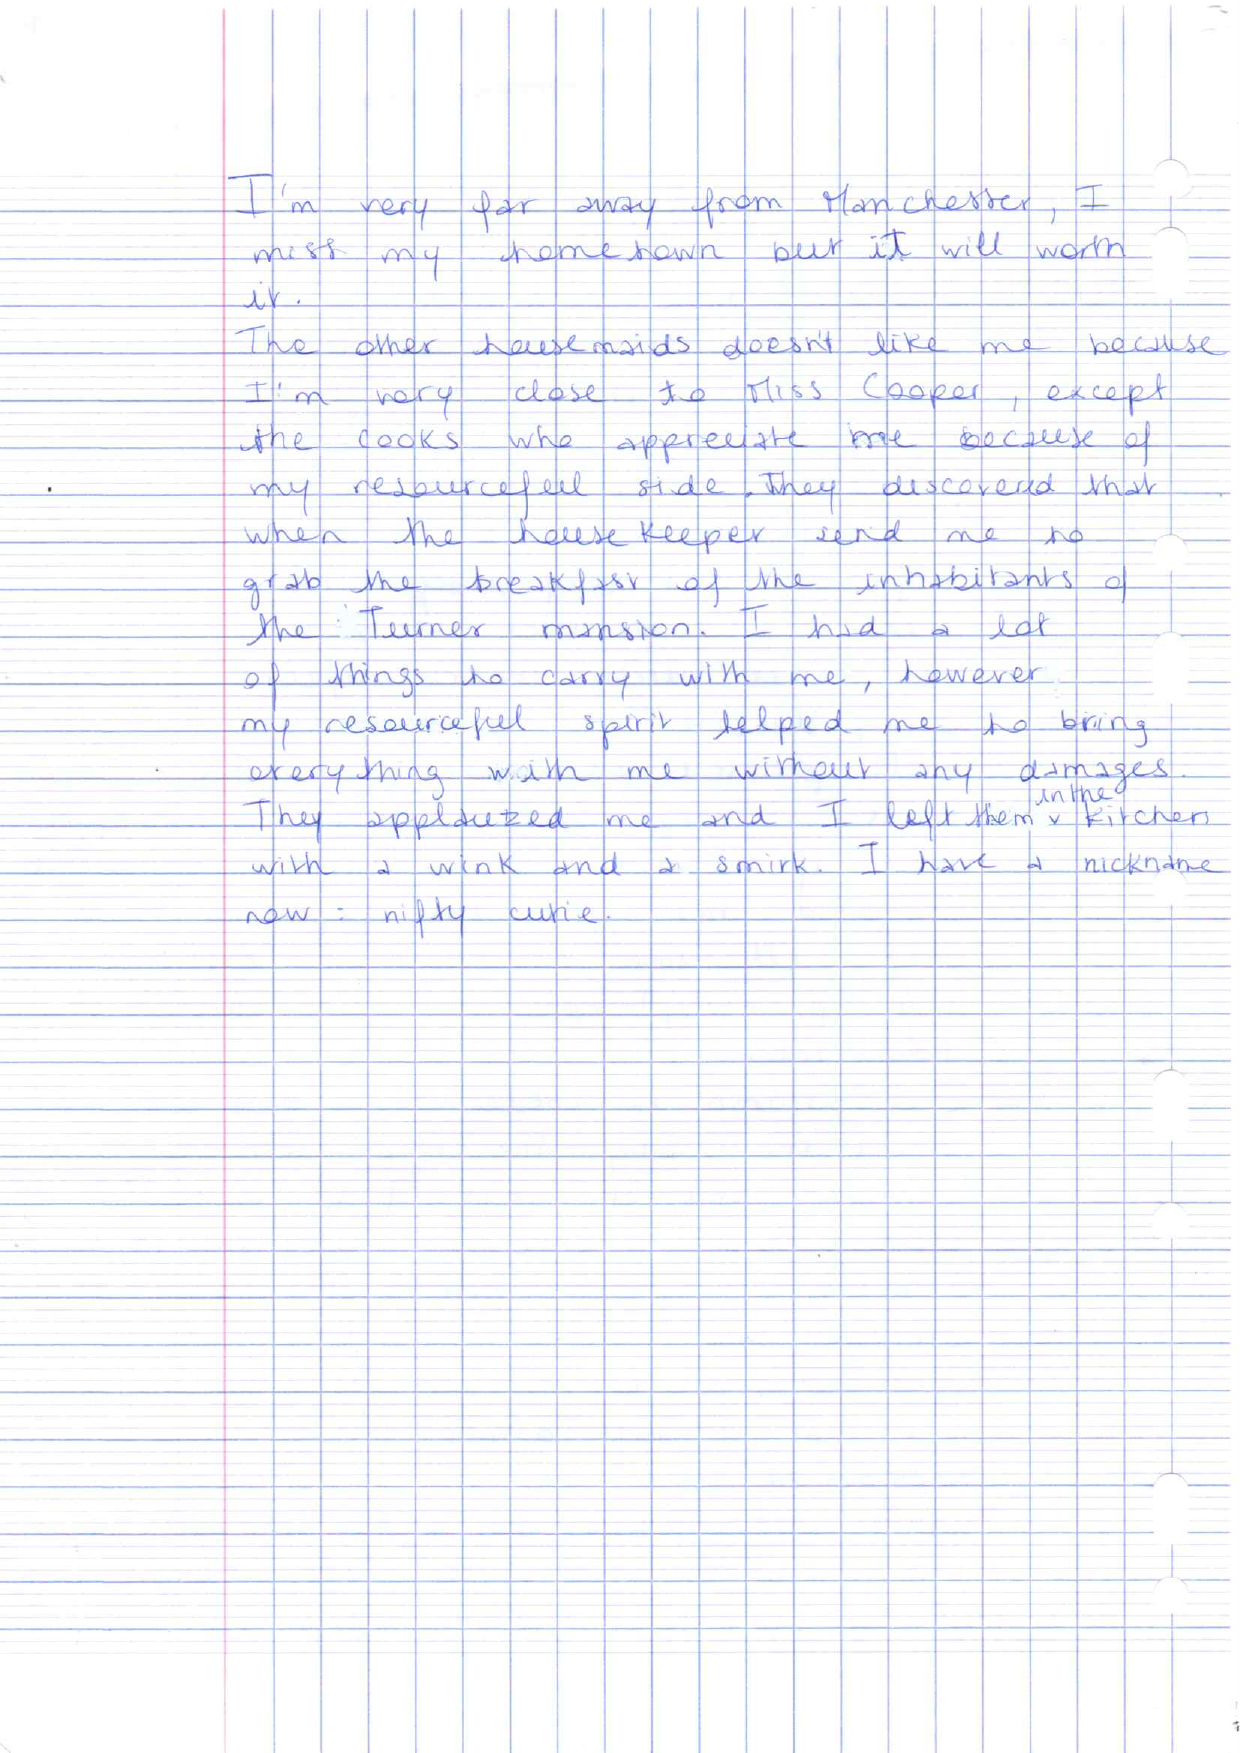 I'm very far away from Manchester, I
miss my hometown but it will worth
it.
The other housemaids doesn't like me because
I'm very close to Miss Cooper, except
the cooks who appreciate me because of
my resourceful side. They discovered that
when the housekeeper send me to
grab the breakfast of the inhabitants of
the Turner mansion. I had a lot
of things to carry with me, however
my resourceful spirit helped me to bring
everything with me without any damages.
They applauzed me and I left them in the kitchen
with a wink and a smirk. I have a nickname
now : nifty cutie.